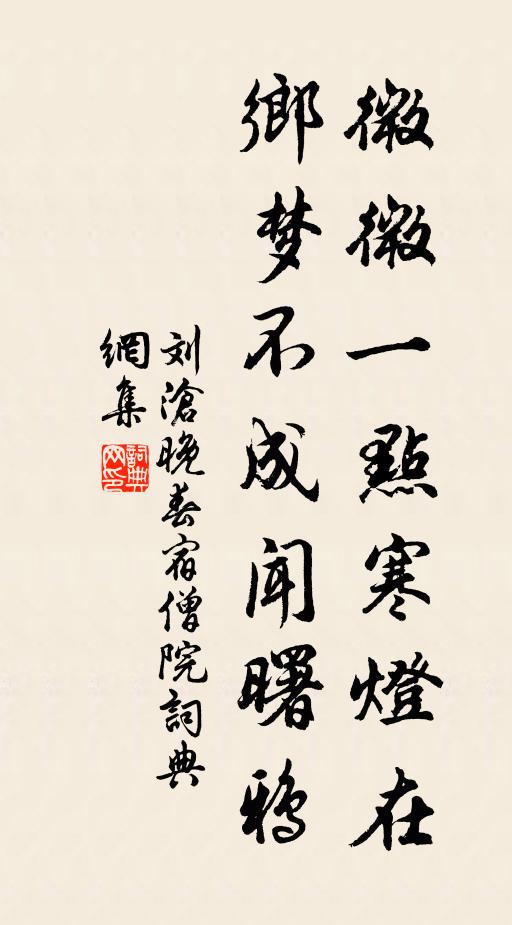 微微一點寒燈在
鄉梦不成闻曙鴉
刘滄晚春宿僧院詞典
網集
詞典
网印